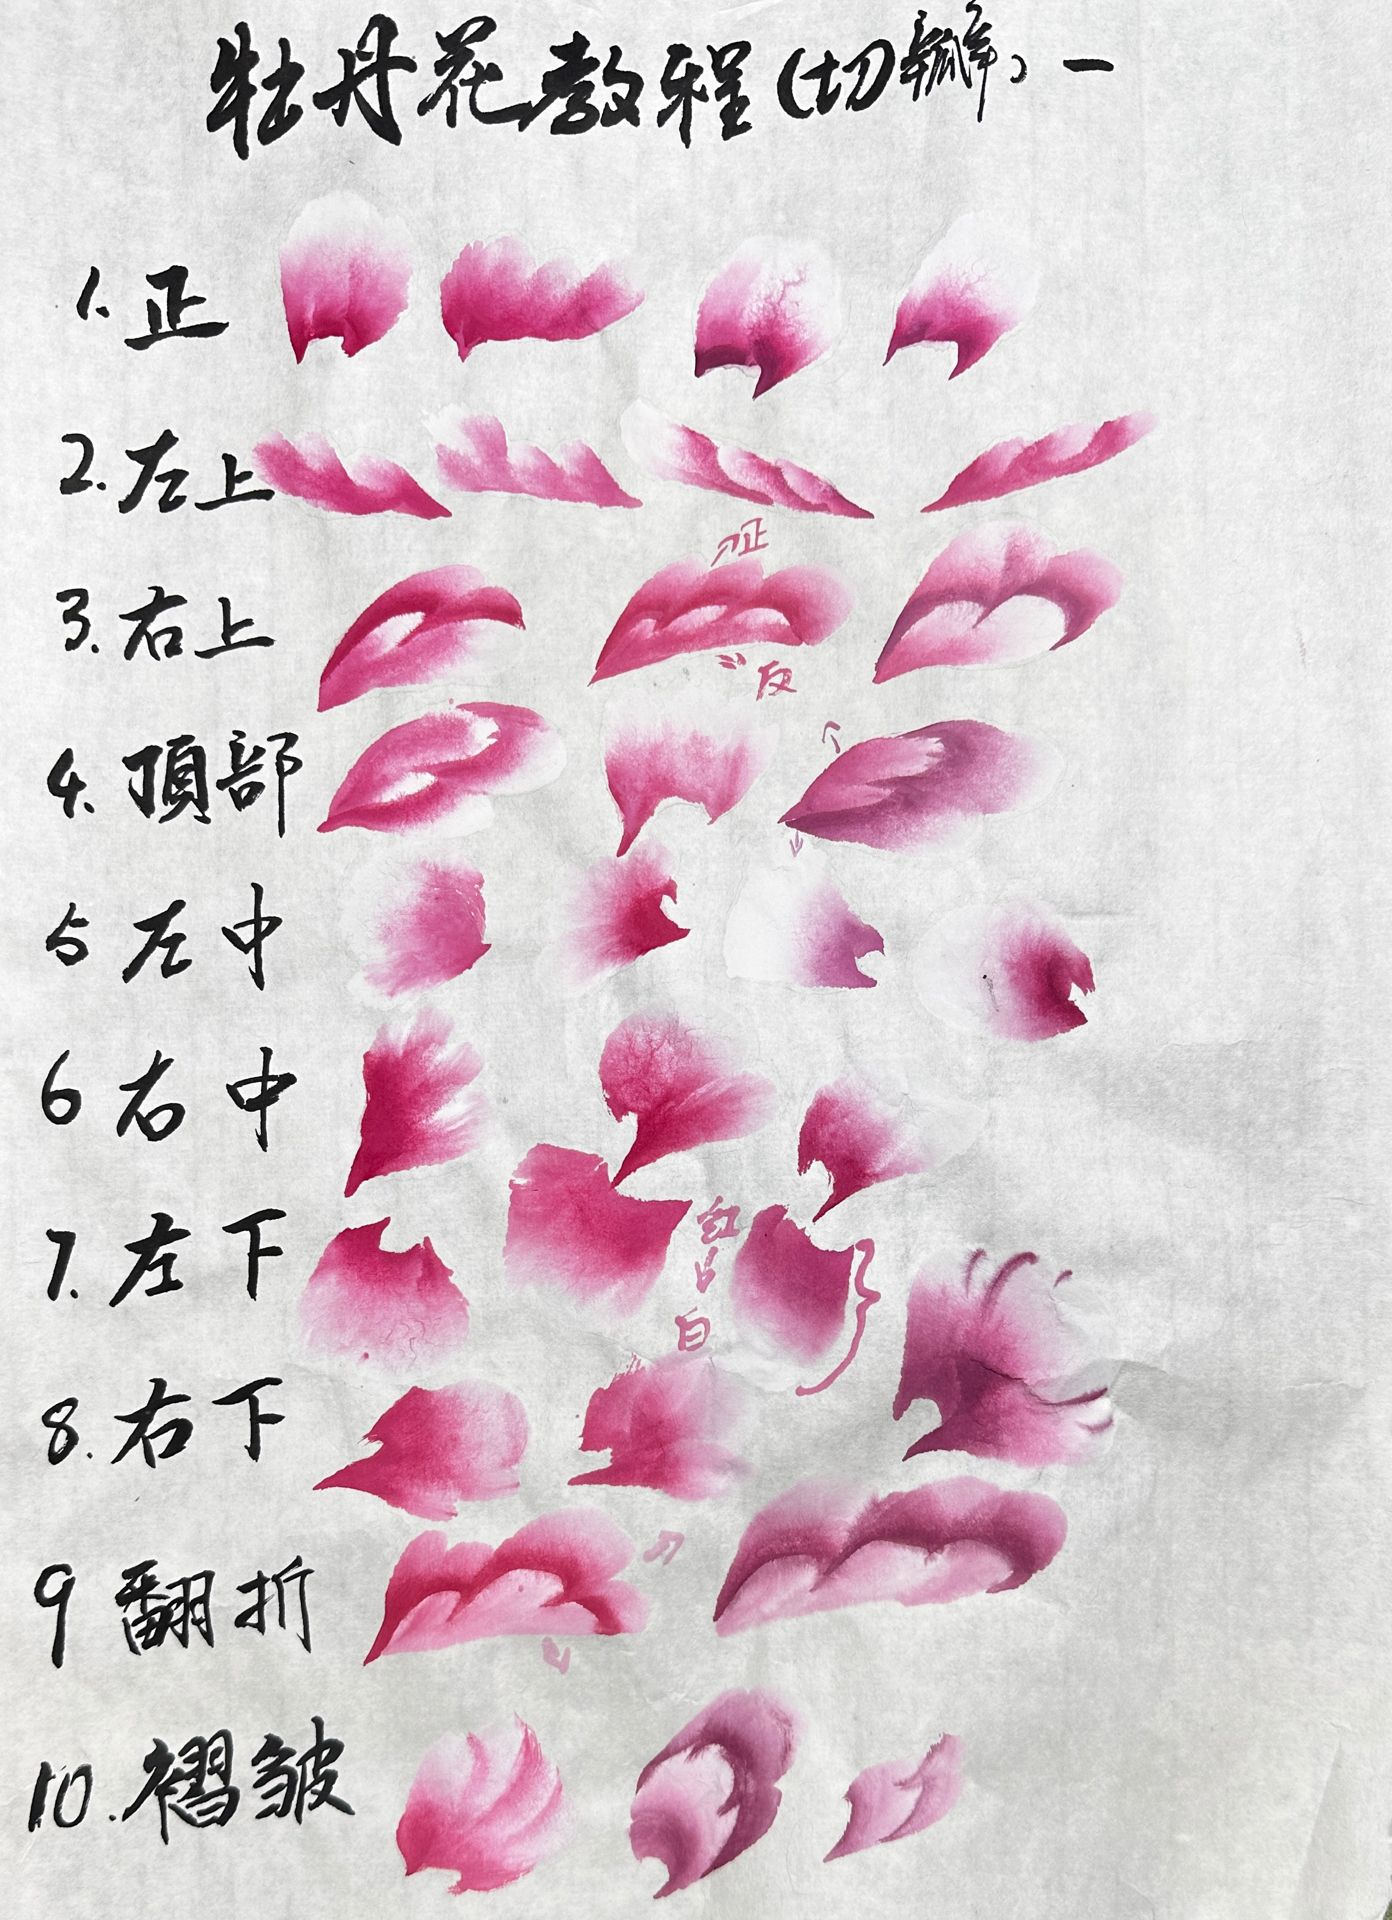 牡丹花教程(切瓣)一
1.正
2.左上
正
3.右上
反
4.頂部
5左中
6右中
7.左下
红
白
8.右下
9翻折
10.褶皱